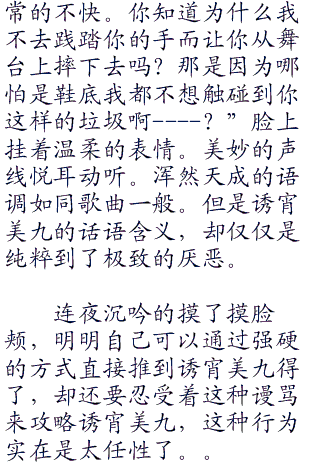 常的不快。你知道为什么我
不去践踏你的手而让你从舞
台上摔下去吗？那是因为哪
怕是鞋底我都不想触碰到你
这样的垃圾啊----？”脸上
挂着温柔的表情。美妙的声
线悦耳动听。浑然天成的语
调如同歌曲一般。但是诱宵
美九的话语含义，却仅仅是
纯粹到了极致的厌恶。
连夜沉吟的摸了摸脸
颊，明明自己可以通过强硬
的方式直接推到诱宵美九得
了，却还要忍受着这种谩骂
来攻略诱宵美九，这种行为
实在是太任性了。。